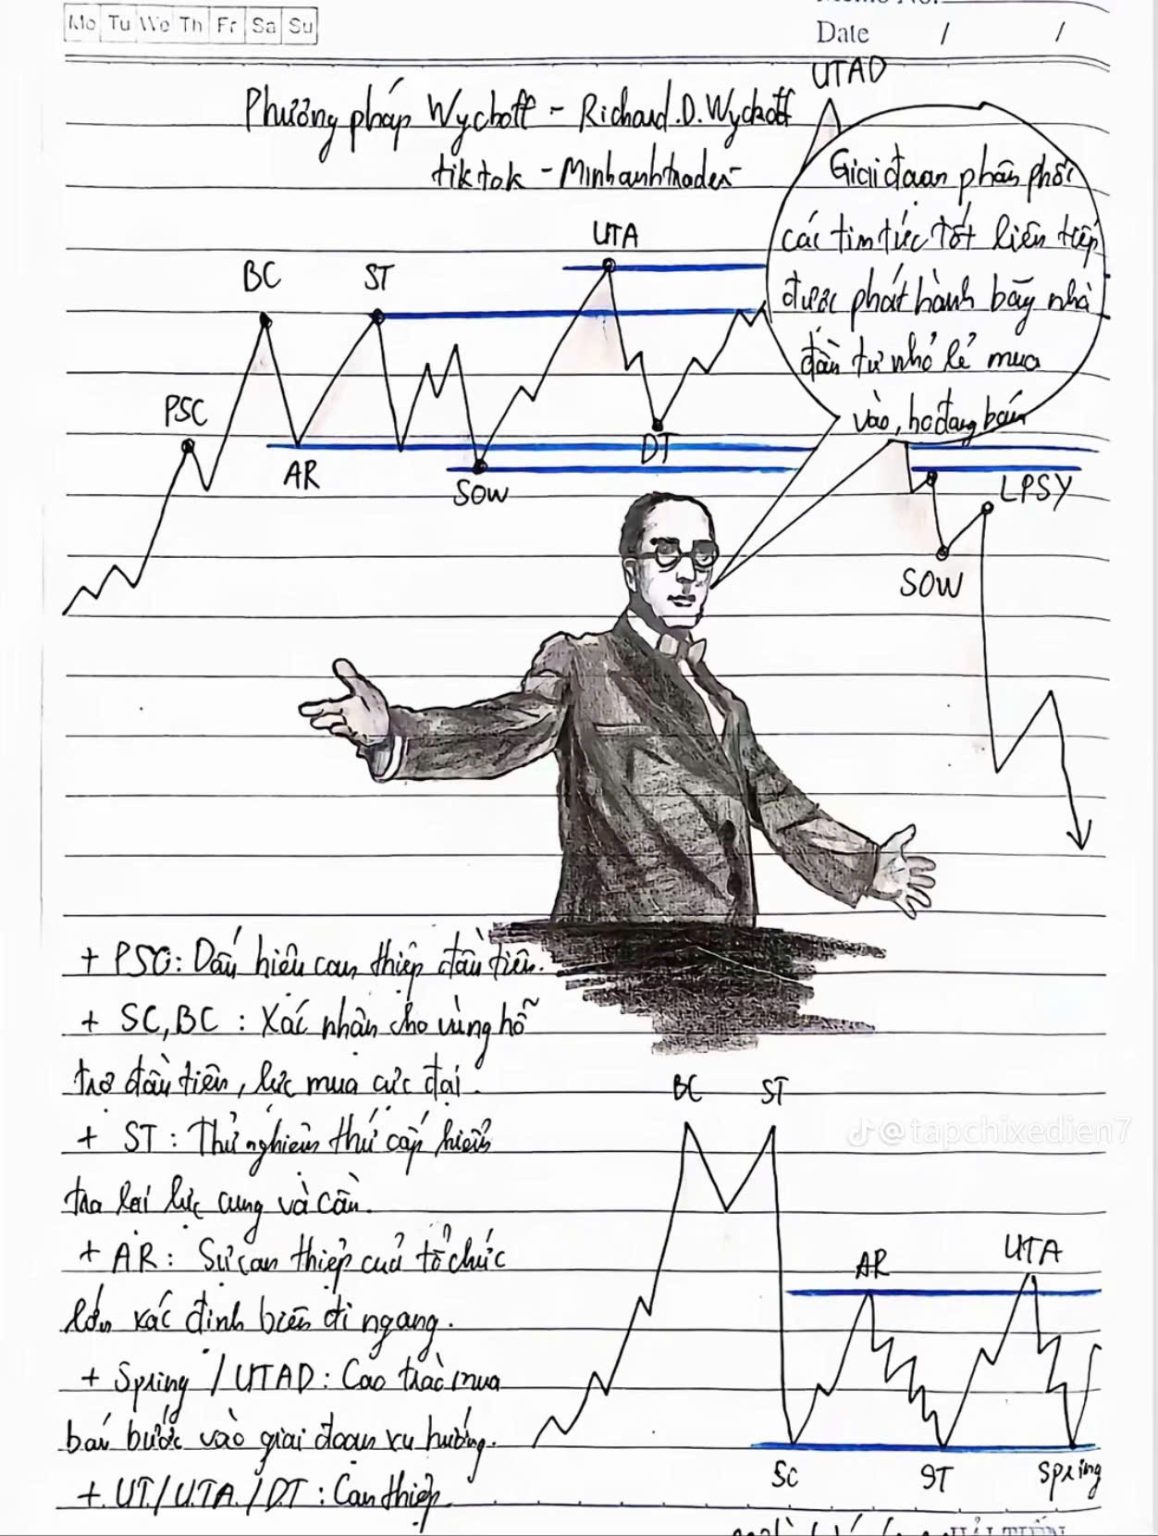 Mo Tu We Th Fr Sa Su
Date / /
UTAD
Phương pháp Wyckoff - Richard.D.Wyckoff
tiktok - Minhanhtrader
Giai đoạn phân phối
các tin tức tốt liên tiếp
được phát hành bẫy nhà
đầu tư nhỏ lẻ mua
vào, họ đang bán
UTA
BC ST
PSC
AR
SOW
DT
LPSY
SOW
+ PSC: Dấu hiệu can thiệp đầu tiên.
+ SC, BC : Xác nhận cho vùng hỗ
trợ đầu tiên, lực mua cực đại.
BC ST
@tapchixedien7
+ ST : Thử nghiệm thứ cấp kiểm
tra lại lực cung và cầu.
+ AR : Sự can thiệp của tổ chức
lớn xác định biên đi ngang.
AR UTA
+ Spring / UTAD : Cao trào mua
bán bước vào giai đoạn xu hướng.
SC ST Spring
+ UT / UTA / DT : Can thiệp